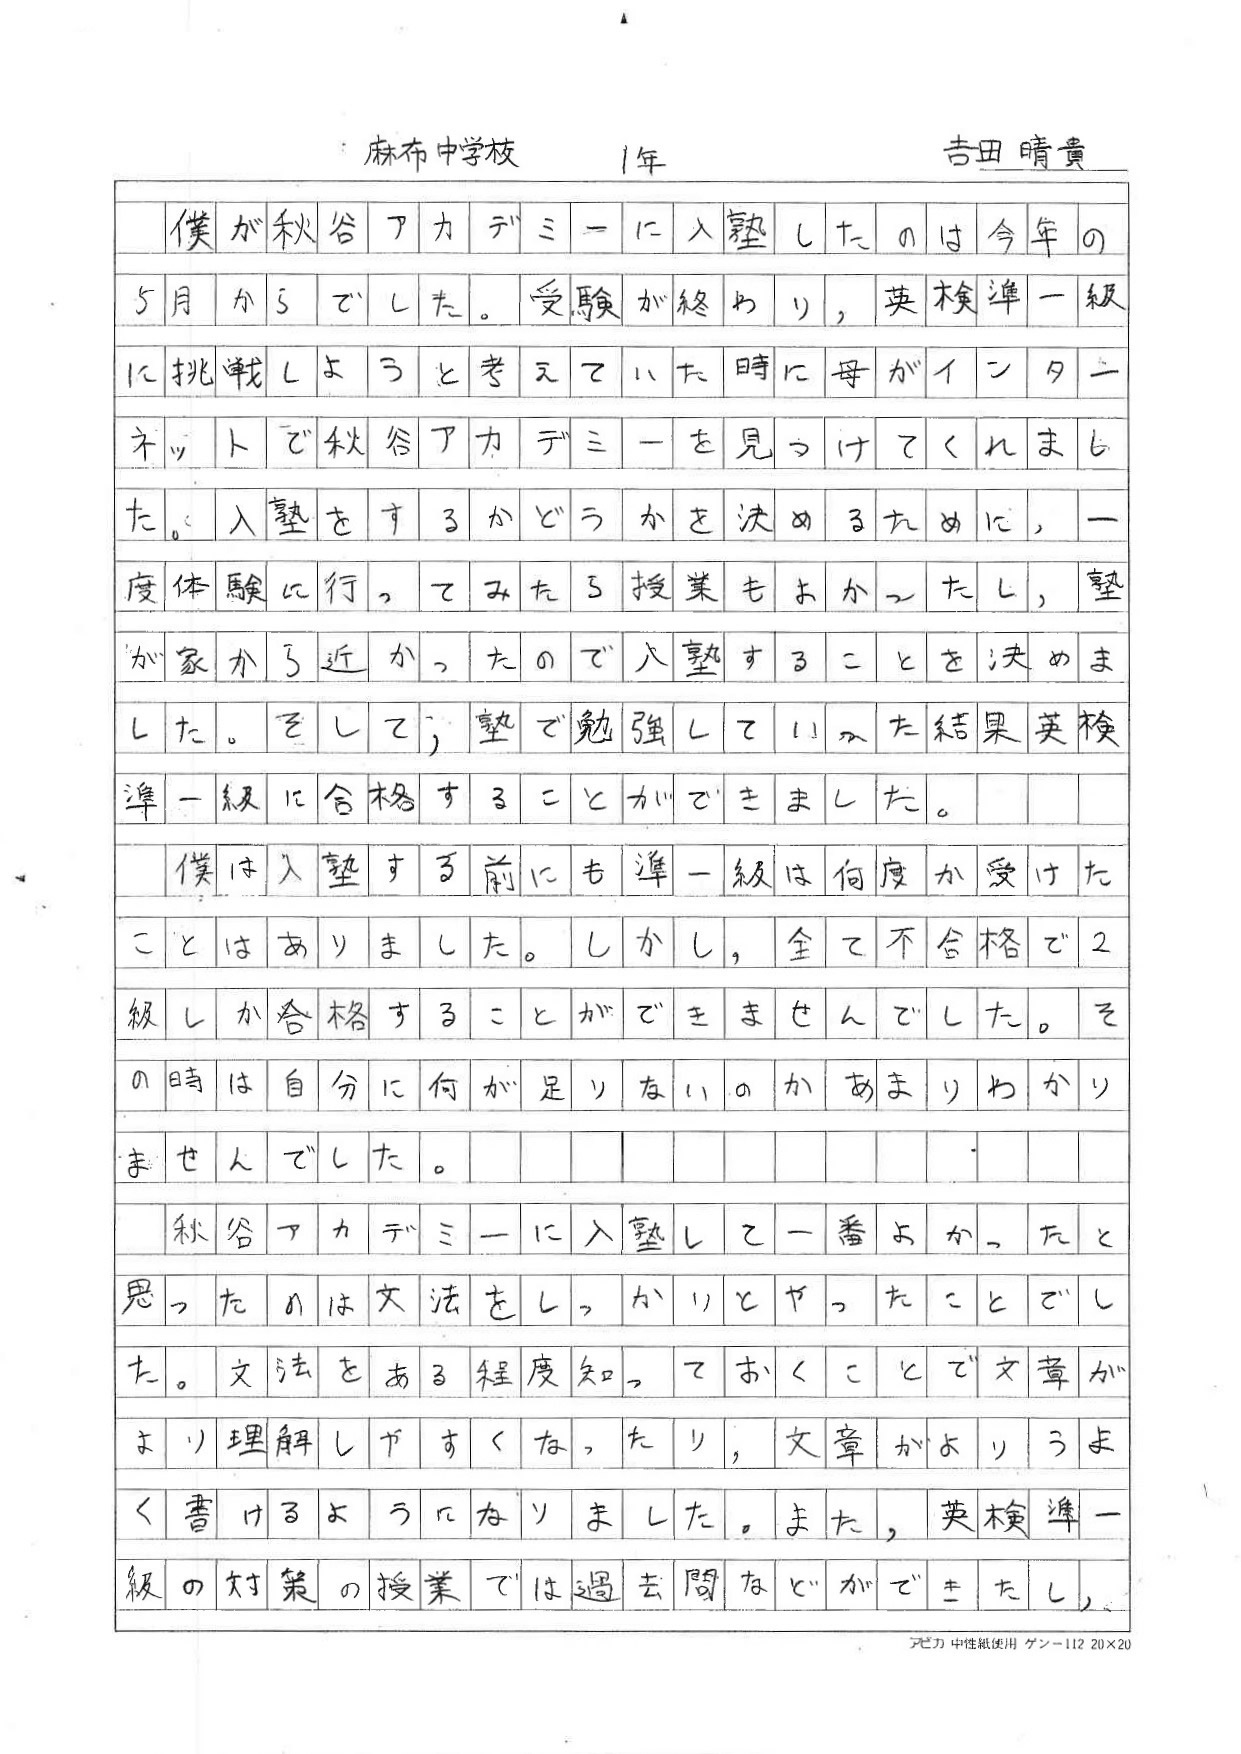 麻布中学校 1年 吉田 晴貴
僕が秋谷アカデミーに入塾したのは今年の
5月からでした。受験が終わり,英検準一級
に挑戦しようと考えていた時に母がインター
ネットで秋谷アカデミーを見つけてくれまし
た。入塾をするかどうかを決めるために,一
度体験に行ってみたら授業もよかったし,塾
が家から近かったので入塾することを決めま
した。そして,塾で勉強していった結果英検
準一級に合格することができました。
僕は入塾する前にも準一級は何度か受けた
ことはありました。しかし,全て不合格で2
級しか合格することができませんでした。そ
の時は自分に何が足りないのかあまりわかり
ませんでした。
秋谷アカデミーに入塾して一番よかったと
思ったのは文法をしっかりとやったことでし
た。文法をある程度知っておくことで文章が
より理解しやすくなったり,文章がよりうま
く書けるようになりました。また,英検準一
級の対策の授業では過去問などができたし,
アピカ 中性紙使用 ゲンー112 20×20